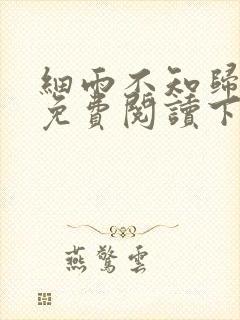 細雨不知歸
免費閱讀下
燕驚雲